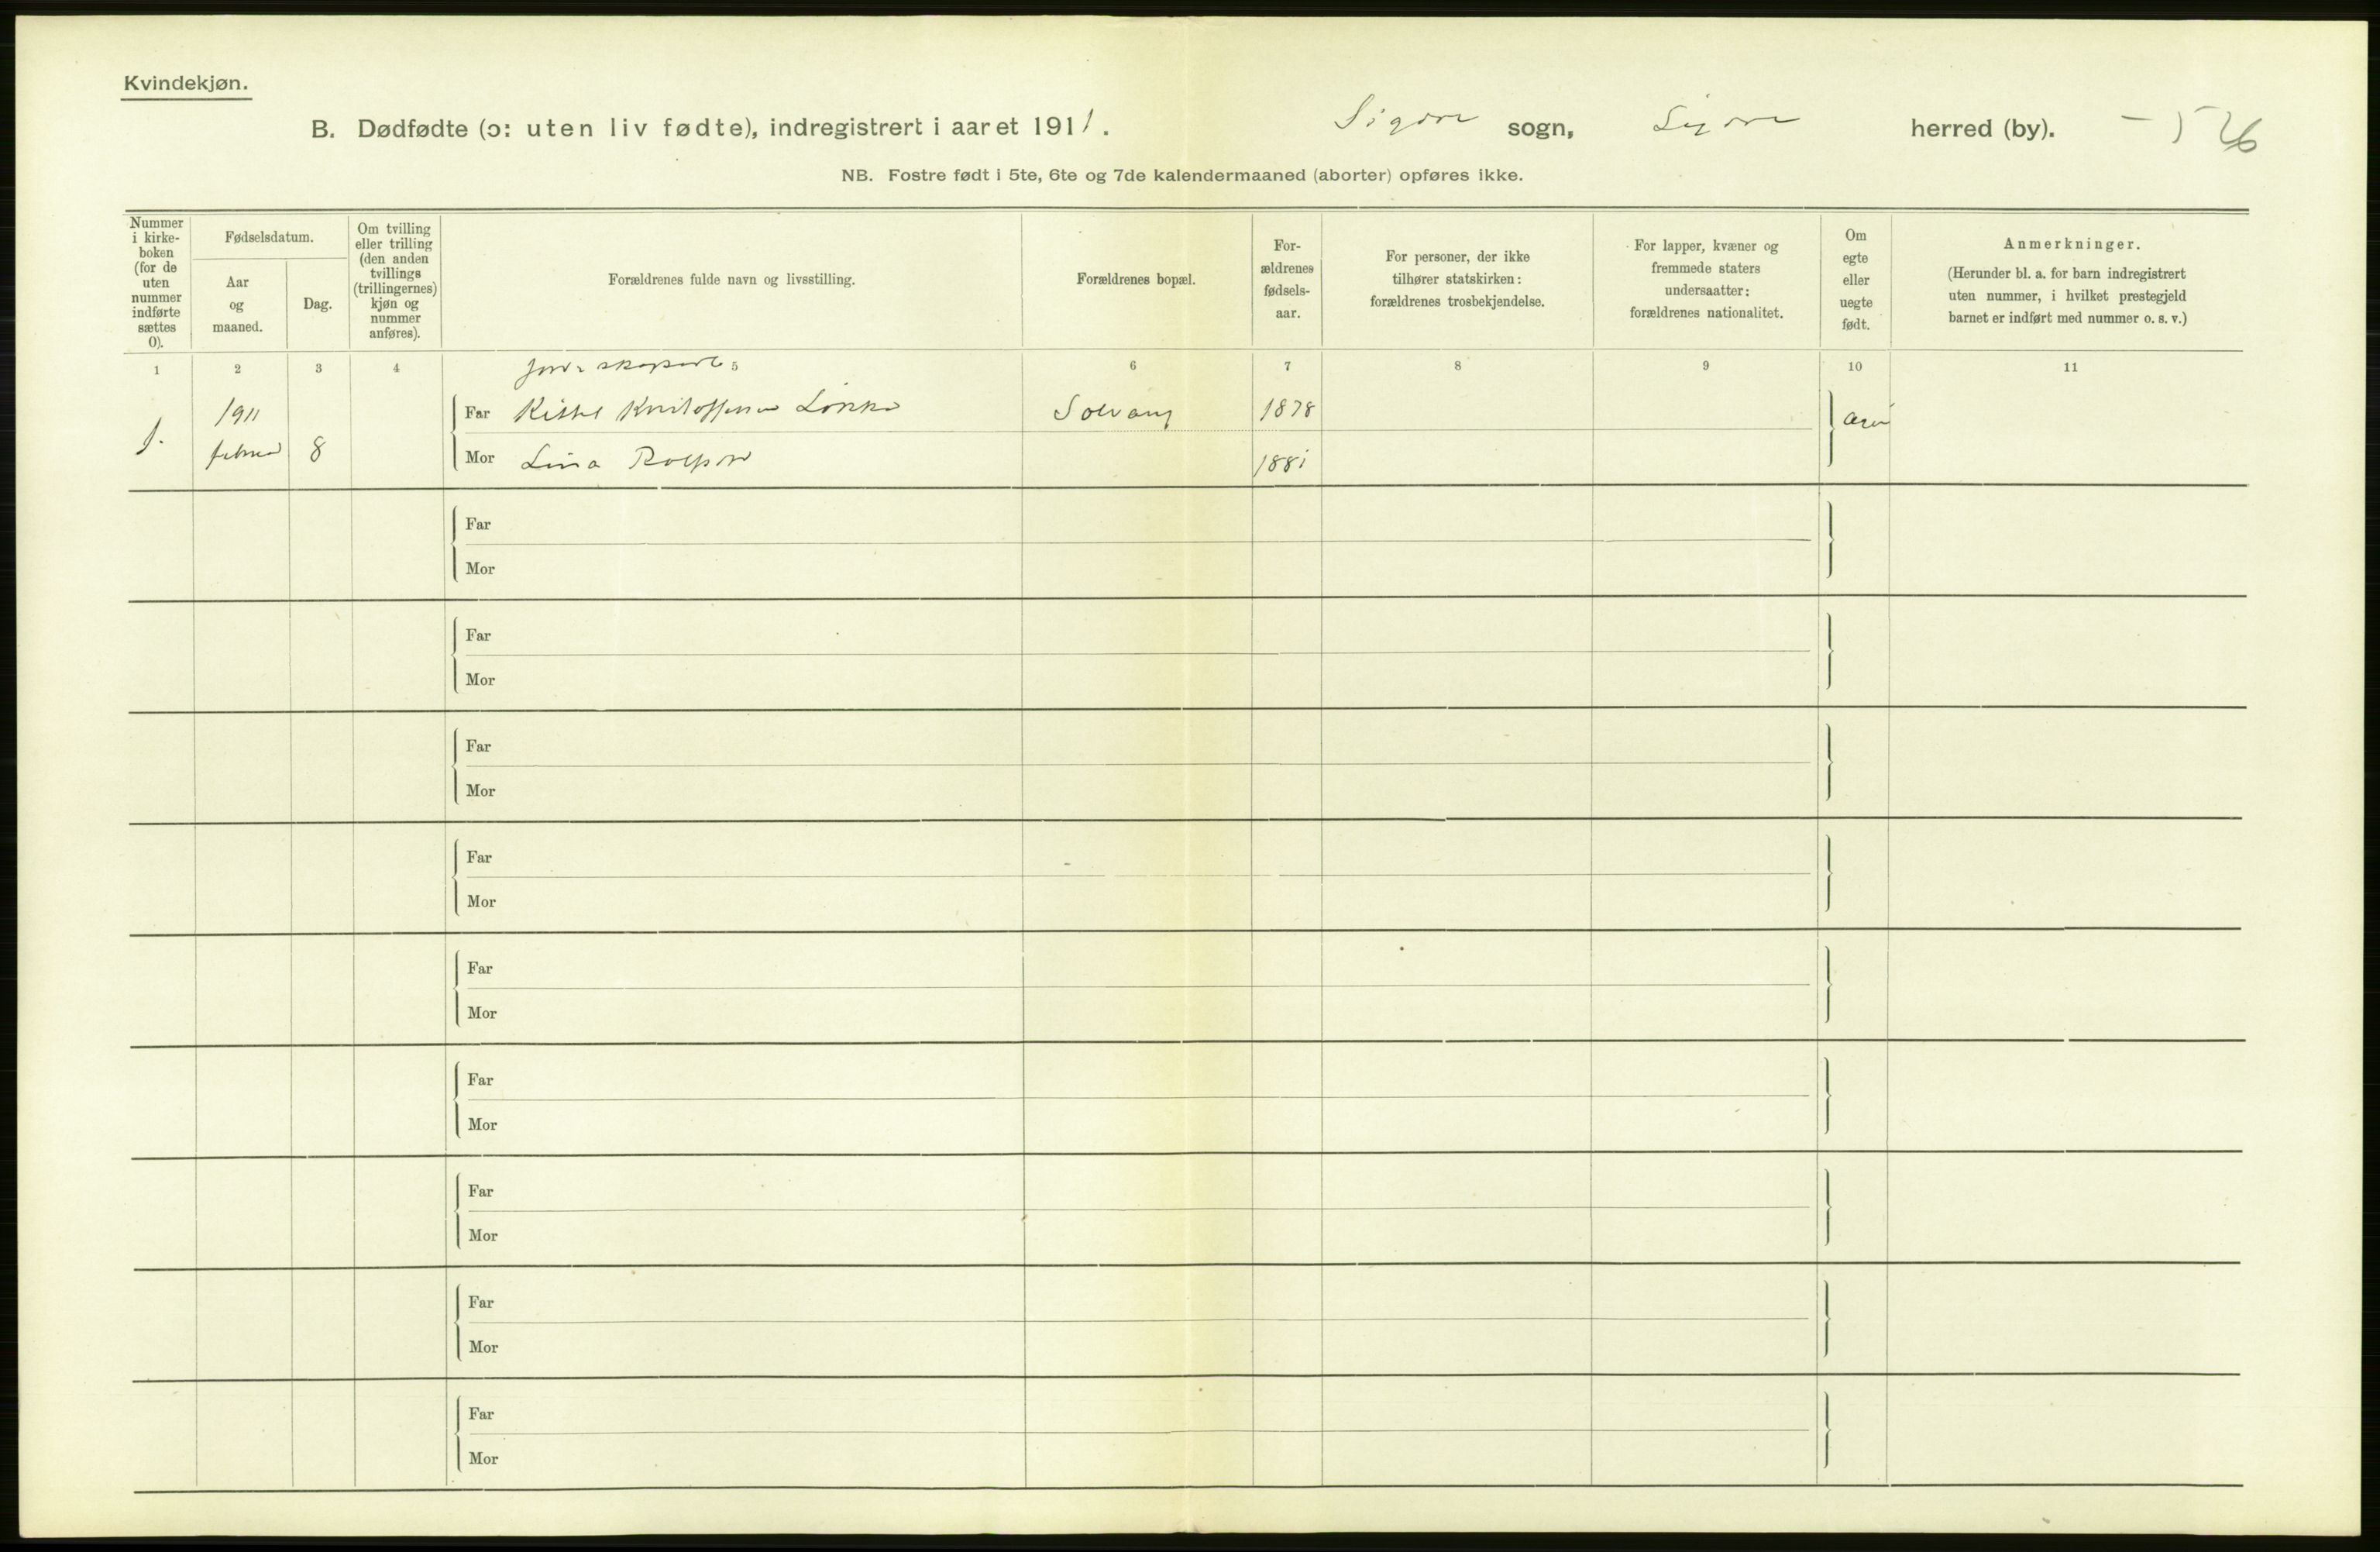 Kvindekjøn.
B. Dødfødte (ɔ: uten liv fødte), indregistrert i aaret 1911. Sigdal sogn, Sigdal herred (by). - 526
NB. Fostre født i 5te, 6te og 7de kalendermaaned (aborter) opføres ikke.
Nummer
i kirke-
boken
(for de
uten
nummer
indførte
sættes
0).
Fødselsdatum.
Aar
og
maaned.
Dag.
Om tvilling
eller trilling
(den anden
tvillings
(trillingernes)
kjøn og
nummer
anføres).
Forældrenes fulde navn og livsstilling.
Forældrenes bopæl.
For-
ældrenes
fødsels-
aar.
For personer, der ikke
tilhører statskirken:
forældrenes trosbekjendelse.
For lapper, kvæner og
fremmede staters
undersaatter:
forældrenes nationalitet.
Om
egte
eller
uegte
født.
Anmerkninger.
(Herunder bl. a. for barn indregistrert
uten nummer, i hvilket prestegjeld
barnet er indført med nummer o. s. v.)
1 2 3 4 5 6 7 8 9 10 11
1. 1911 Far Kittil Kristoffersen Solvang 1878
februar 8 Mor Lina 1881
Far
Mor
Far
Mor
Far
Mor
Far
Mor
Far
Mor
Far
Mor
Far
Mor
Far
Mor
Far
Mor